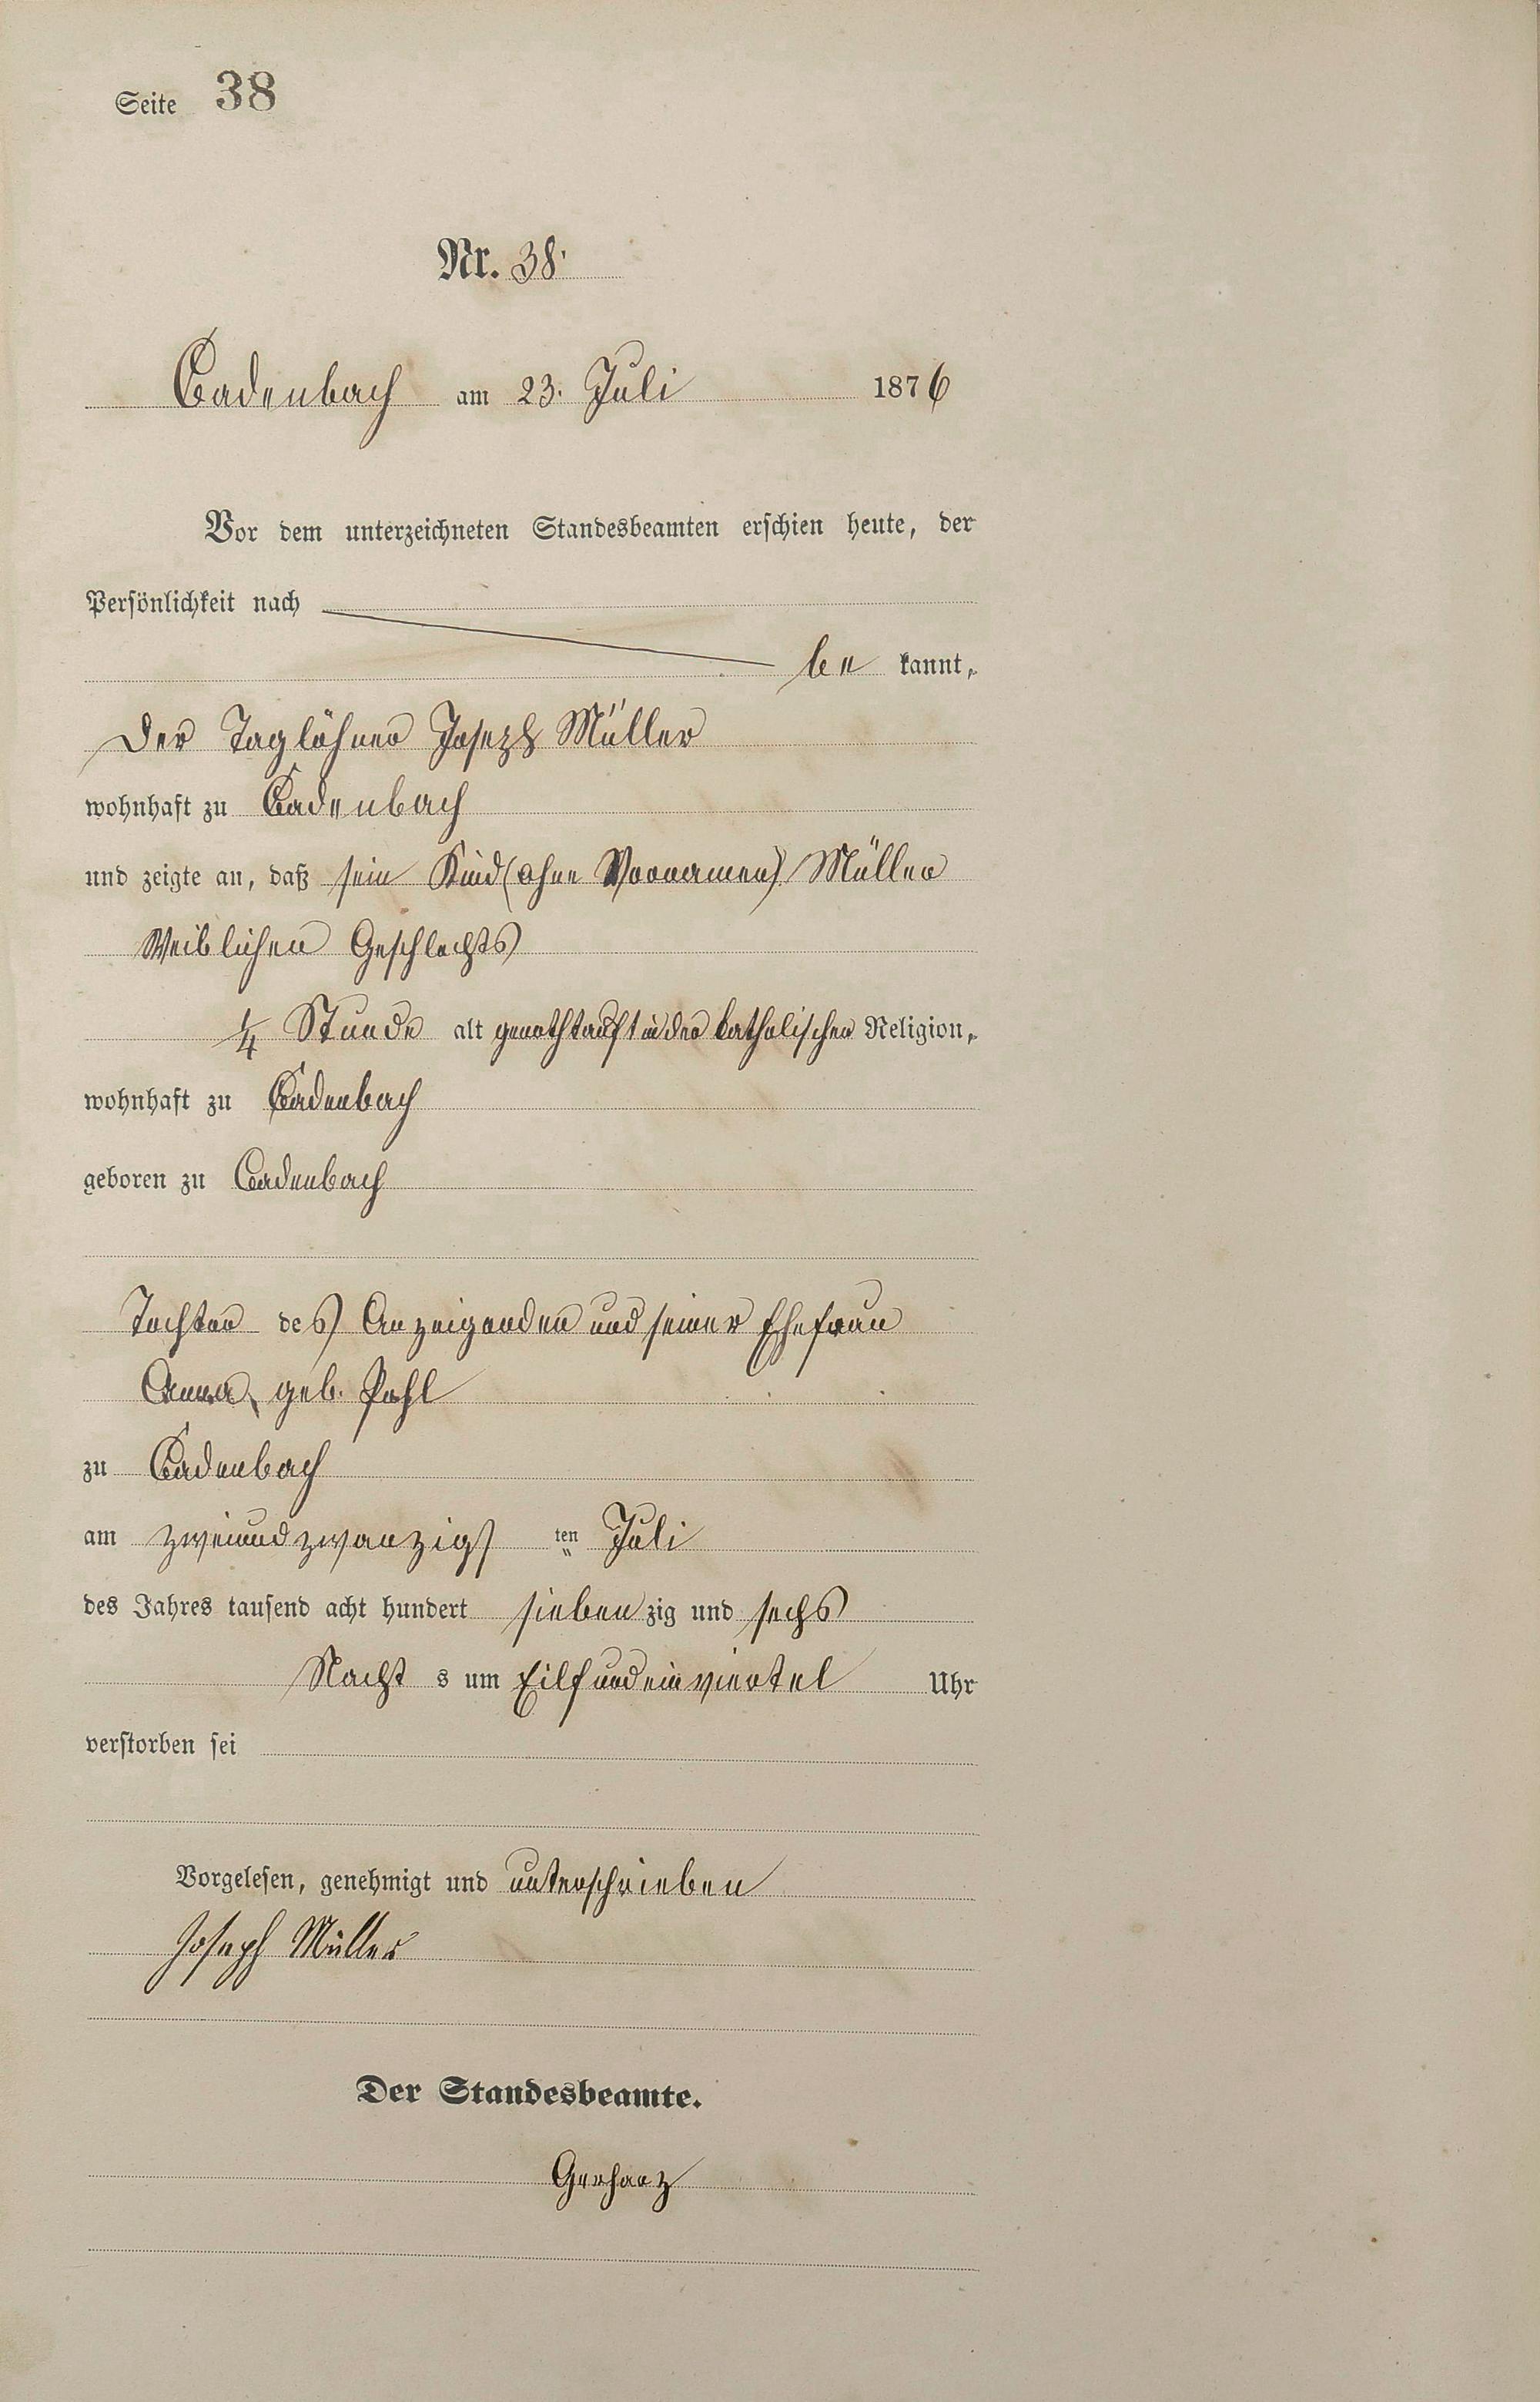 Seite 38
Nr. 38.
Cadenbach am 23. Juli 1876
Vor dem unterzeichneten Standesbeamten erschien heute, der
Persönlichkeit nach
be kannt,
Der Taglöhner Joseph Müller
wohnhaft zu Cadenbach
und zeigte an, daß sein Kind (ohne Vornamen) Müller
Weiblichen Geschlechts
1/4 Stunde alt genothtauft in der katholischen Religion,
wohnhaft zu Cadenbach
geboren zu Cadenbach
Tochter des Anzeigenden und seiner Ehefrau
Anna, geb. Pohl
zu Cadenbach
am zweiundzwanzigs ten Juli
des Jahres tausend acht hundert sieben zig und sechs
Nacht s um Eilf und ein viertel Uhr
verstorben sei
Vorgelesen, genehmigt und unterschrieben
Joseph Müller
Der Standesbeamte.
Gerharz